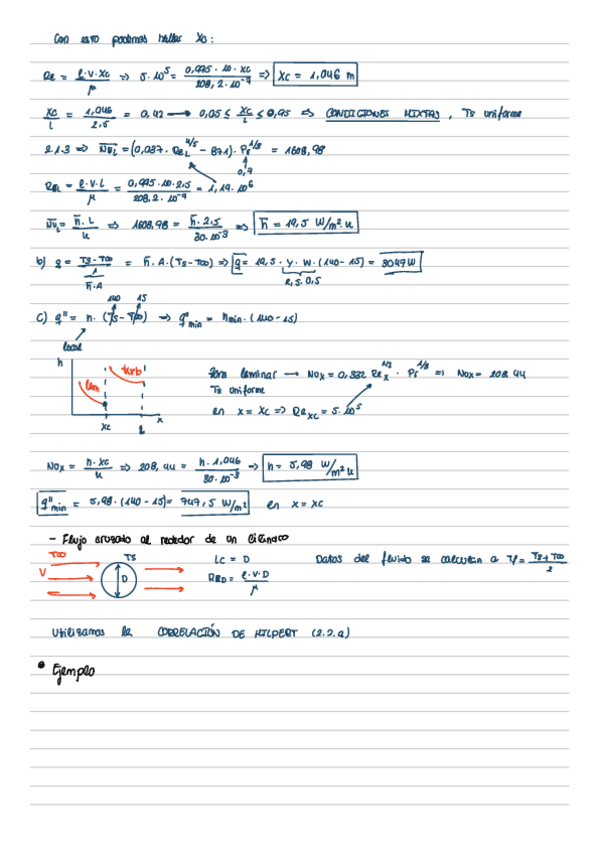 Con esto podemos hallar Xc:
Re = ρ·V·Xc / μ => 5·10⁵ = 0,995·10·Xc / 208,2·10⁻⁷ => Xc = 1,046 m
Xc/L = 1,046/2,5 = 0,42 → 0,05 ≤ Xc/L ≤ 0,95 => CONDICIONES MIXTAS, Ts uniforme
2.1.3 => N̄u̅L = (0,037·ReL^4/5 - 871)·Pr^1/3 = 1608,98
0,7
ReL = ρ·V·L / μ = 0,995·10·2,5 / 208,2·10⁻⁷ = 1,19·10⁶
N̄u̅L = h̄·L / k => 1608,98 = h̄·2,5 / 30·10⁻³ => h̄ = 19,5 W/m²·k
b) q = Ts-T∞ / (1 / h̄·A) = h̄·A·(Ts-T∞) => q = 19,5·y·w·(140-15) = 3047W
2,5·0,5
140 15
c) q'' = h·(Ts-T∞) => q''min = hmin·(140-15)
local
h
lam
turb
xc
L
x
Zona laminar → Nux = 0,332 Rex^1/2 · Pr^1/3 => Nux = 208,44
Ts uniforme
en x = xc => Rexc = 5·10⁵
Nux = h·xc / k => 208,44 = h·1,046 / 30·10⁻³ => h = 5,98 W/m²k
q''min = 5,98·(140-15) = 747,5 W/m² en x = xc
- Flujo cruzado al rededor de un cilindro
T∞
V
Ts
D
Lc = D
ReD = ρ·V·D / μ
Datos del fluido se calculan a Tf = Ts+T∞ / 2
Utilizamos la CORRELACIÓN DE HILPERT (2.2.a)
• Ejemplo